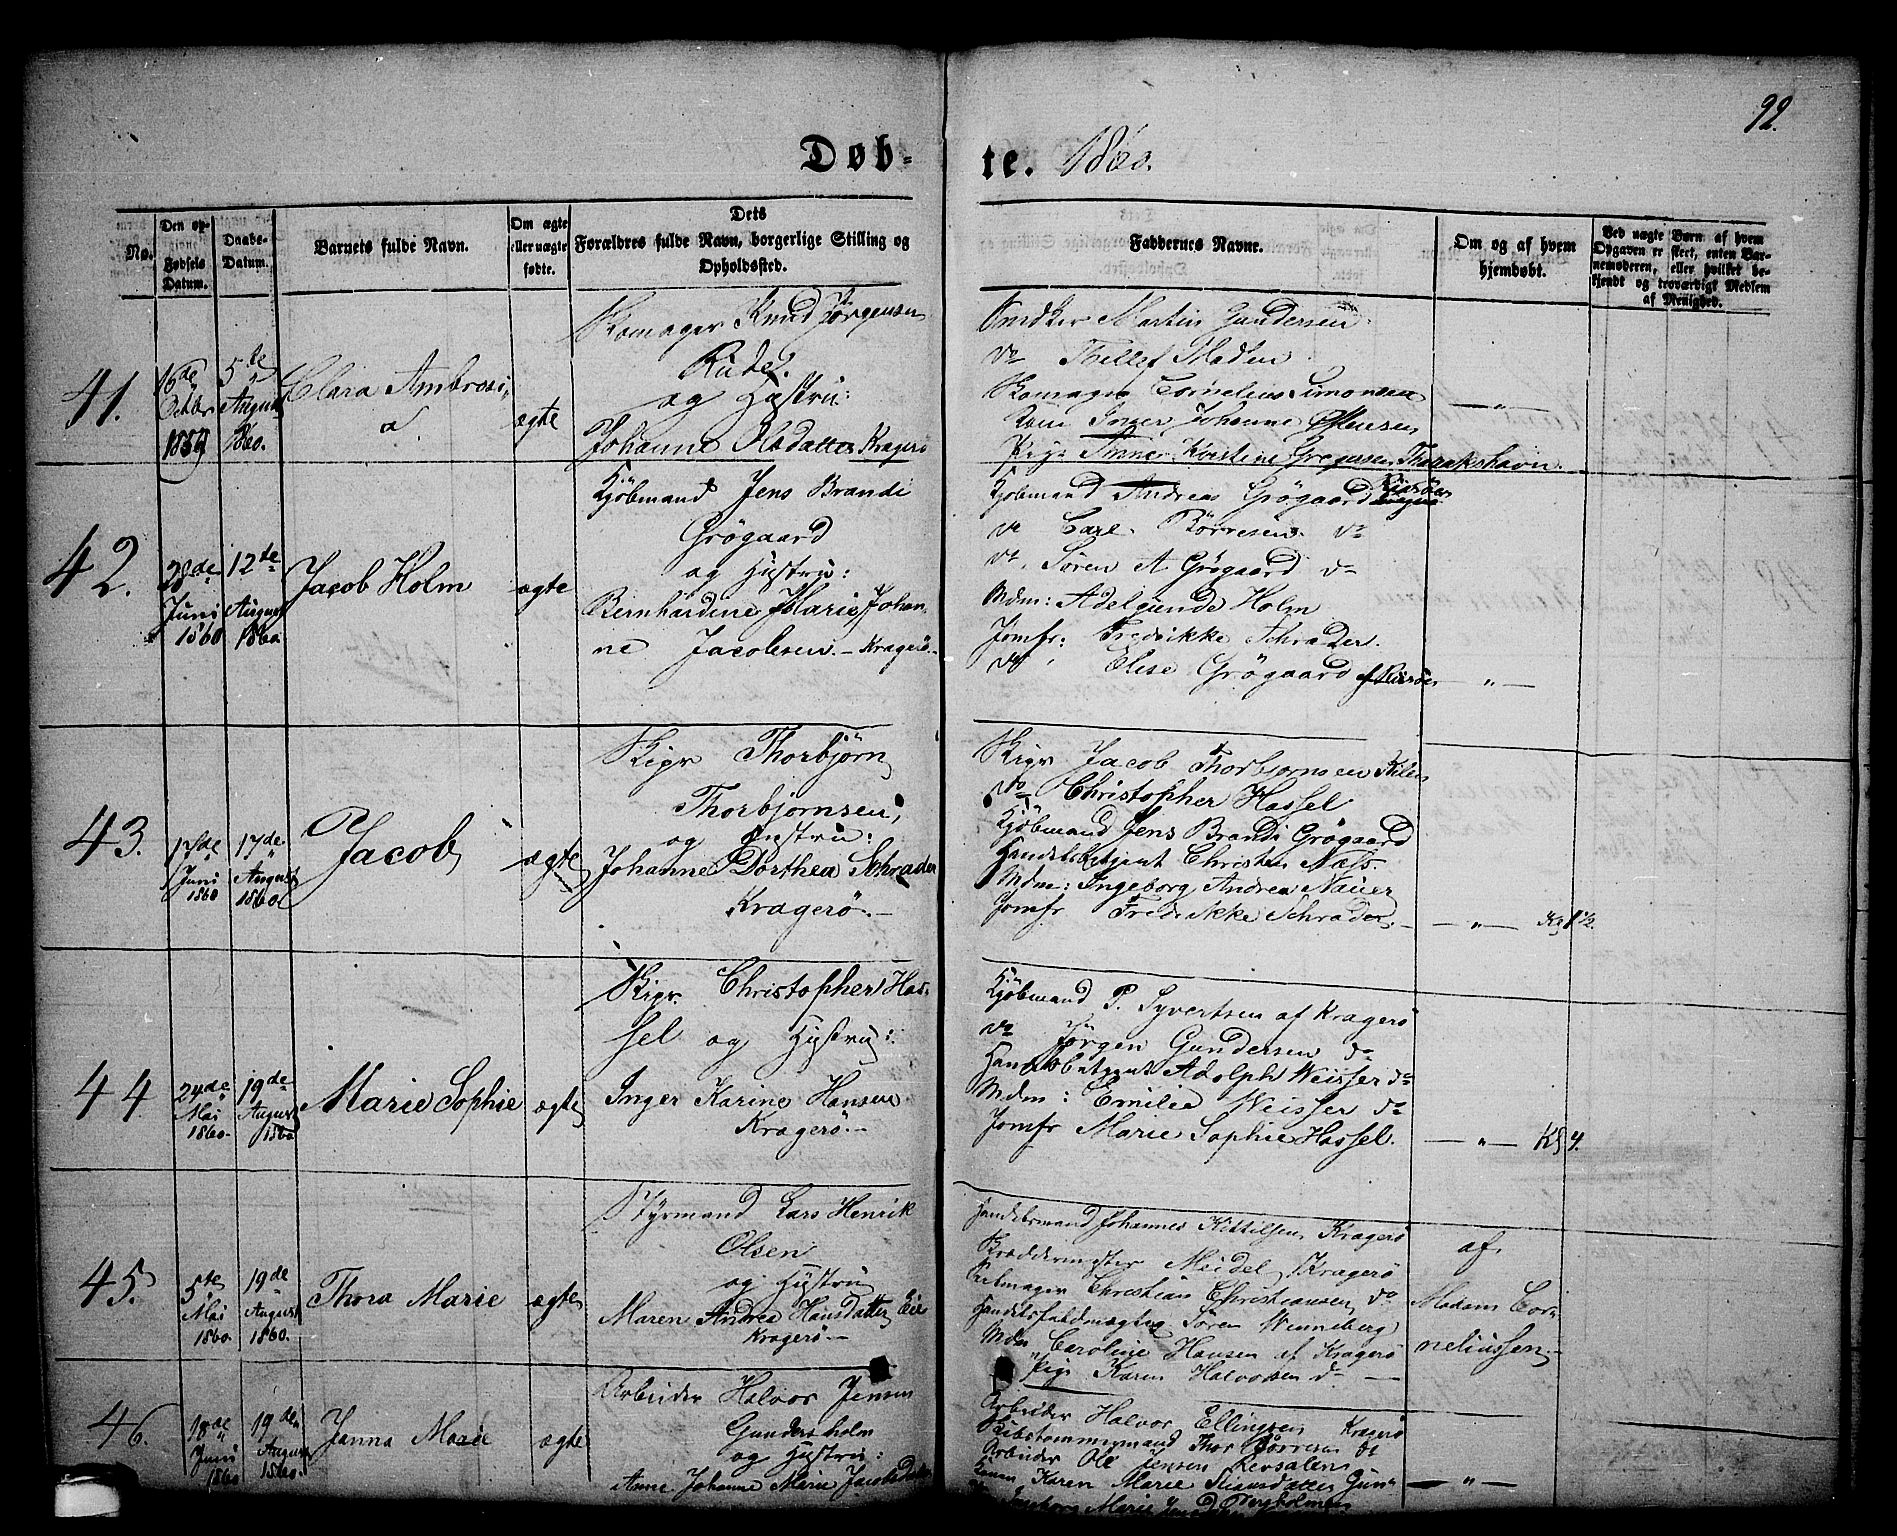 92.
Døb-
te. 1860.
No.
Den op-
givne
Fødsels
Datum.
Daabs-
Datum.
Barnets fulde Navn.
Om ægte
eller uægte
fødte.
Dets
Forældres fulde Navn, borgerlige Stilling og
Opholdssted.
Faddernes Navne.
Om og af hvem
hjemdøbt.
Ved uægte Børn af hvem
Opgaven er skeet, enten Bar-
nemoderen, eller hvilket be-
kjendt og troværdigt Medlem
af Menighed.
41.
16de
Octbr
1859
5te
August
1860.
Clara Ambrosi-
a
ægte
Skomager Knud Jørgensen
Rude.
og Hystru:
Johanne Kragerö
Snedker Martin Gundersen
do Thellef Madsen
Skomager Cornelius Simonsen
Kone Inger Johanne
Pige Kristine Thorakshavn.
— " —
42.
28de
Juni
1860
12te
August
1860
Jacob Holm
ægte
Kjöbmand Jens Brandi
Grögaard
og Hystru:
Bernhardine Marie Johan-
ne Jacobsen. – Kragerö. –
Kjöbmand Andreas Grögaard
do Carl Börresen do
do Sören A Grögaard do
Mdm: Adelgunde Holm
Jomfr: Fredrikke Schrader.
do Elise Grögaard af Riisöer
— " —
43.
17de
Juni
1860
17de
August
1860
Jacob
ægte
Skipr Thorbjörn
Thorbjörnsen,
og Hystru:
Johanne Dorthea Schrader
Kragerö. –
Skipr Jacob Thorbjornsen
do Christopher Hassel
Kjöbmand Jens Brandi Grögaard
Handelsbetjent Christen Næss.
Mdm: Ingeborg Andrea Nauer
Jomfr Fredrikke Schrader. –
— " —
44
24de
Mai
1860.
19de
August
1860
Marie Sophie
ægte
Skipr. Christopher Has-
sel og Hystru:
Inger Karine Hansen
Kragerö. –
Kjöbmand P. Syvertsen af Kragerö
do Jörgen Gundersen do
Handelsbetjent Adolph Weisser do
Mdm: Emilie Weisser do
Jomfr Marie Sophie Hassel.
— " — 4.
45.
5te
Mai
1860.
19de
August
1860.
Thora Marie
ægte
Styrmand Lars Henrik
Olsen
og Hystru
Maren Andrea Hansdatter
Kragerö. –
Handelsmand Johannes Kittilsen Kragerö
Skreddermester Meidel Kragerö
Christian Christiansen do
Handelsfuldmægtig Sören Wenneberg
Mdm Caroline Hansen af Kragerö
Pige Karen Halvorsen do —
af
Madam Cor-
neliussen. –
46.
18de
Juni
1860
19de
August
1860.
Janna Marie
ægte
Arbeider Halvor Jensen
Gundersholm
og Hystru:
Anne Johanne Marie
Arbeider Halvor Ellingsen Kragerö
Thor Börresen do
Arbeider Ole Jensen
Konen Karen Marie
Marie
— " —